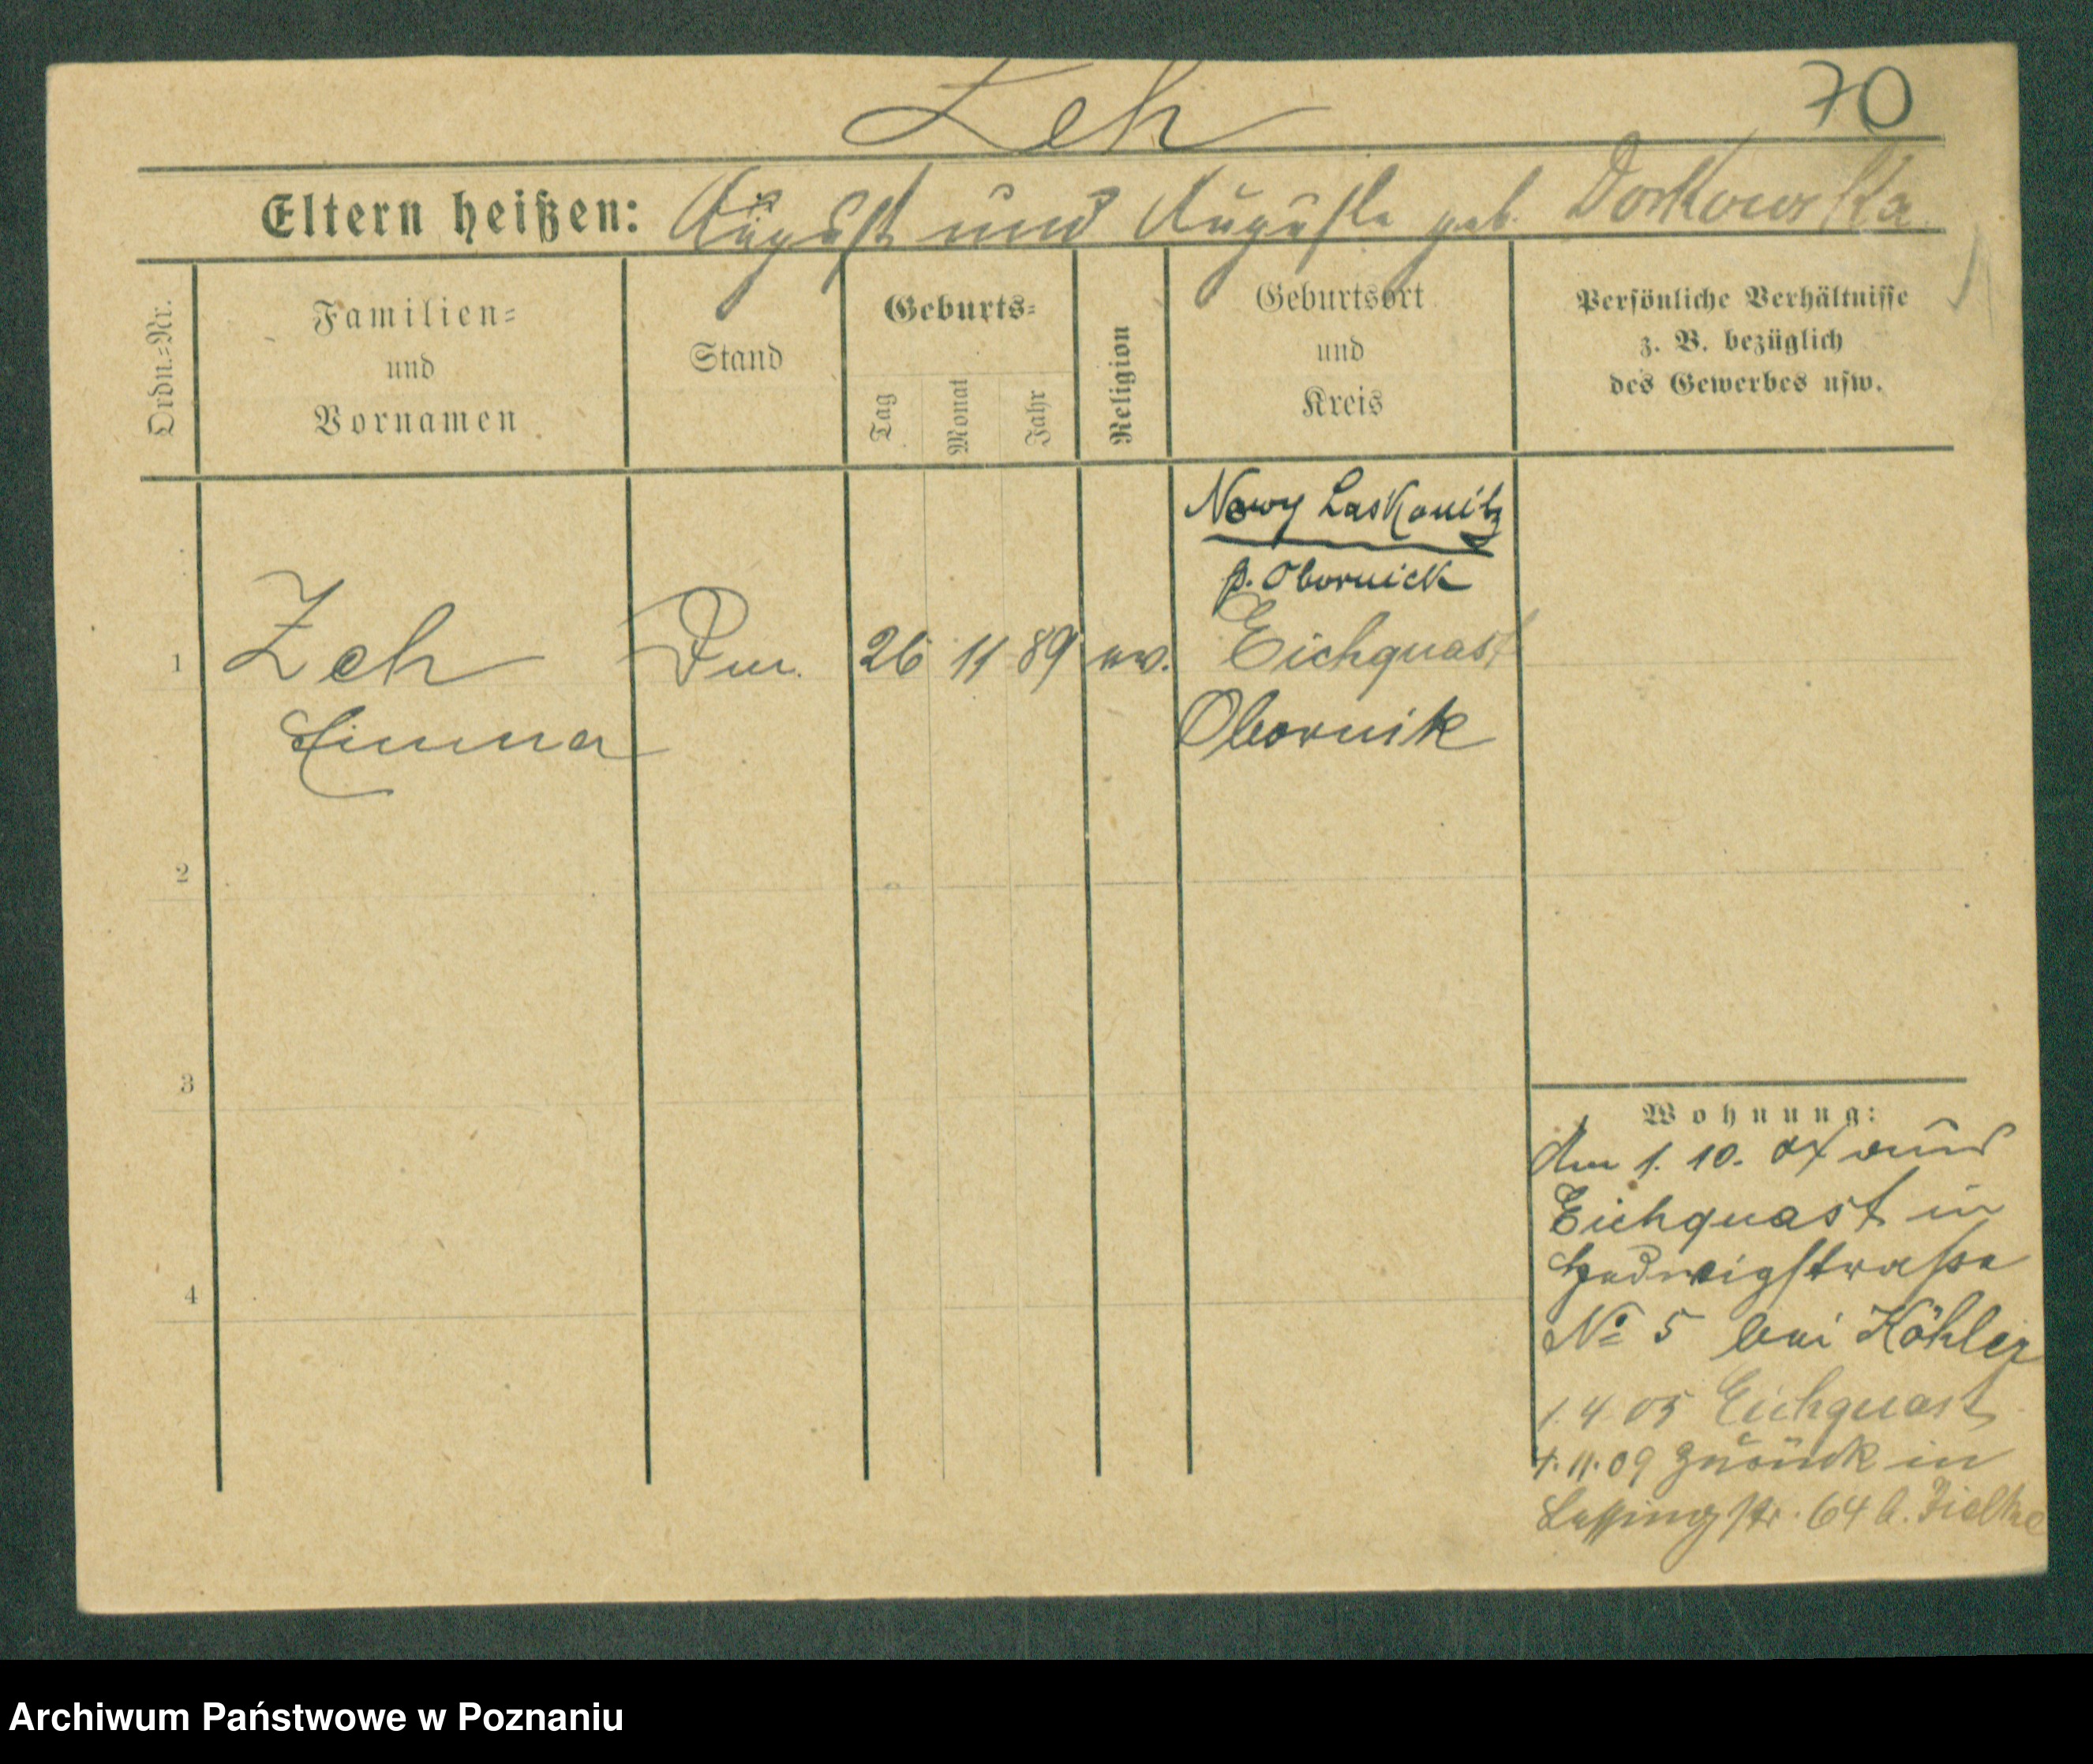 Zeh
70
Eltern heißen: August und Auguste geb. Dorkowska
Ordn.-Nr.
Familien-
und
Vornamen
Stand
Geburts-
Tag
Monat
Jahr
Religion
Geburtsort
und
Kreis
Persönliche Verhältnisse
z. B. bezüglich
des Gewerbes usw.
Nowy Laskowitz
p. Obornick
1 Zeh 26 11 89 ev. Eichquast
Obornik
2
3
4
Wohnung:
Am 1. 10. 04 aus
Eichquast in
Hedwigstraße
No 5 bei Köhler
1. 4 05 Eichquast
4. 11. 09 zurück in
Lessingstr. 64 b. Zielke